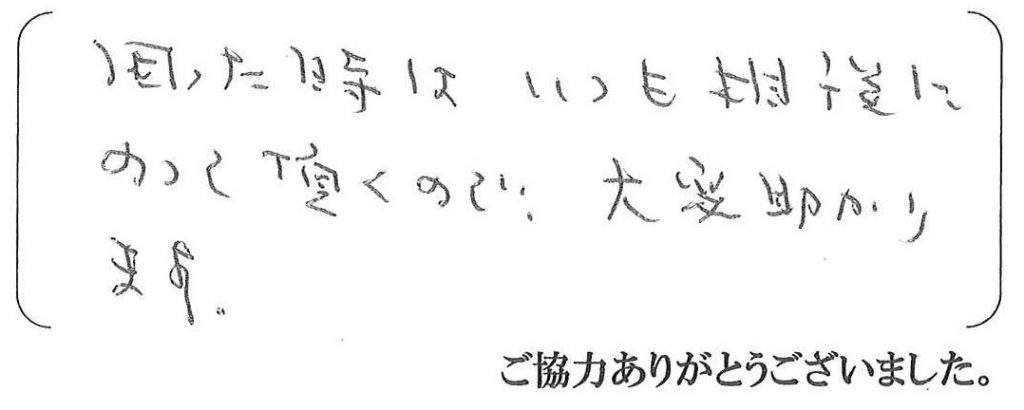 困った時はいつも相談に
のって頂くので、大変助かり
ます。
ご協力ありがとうございました。